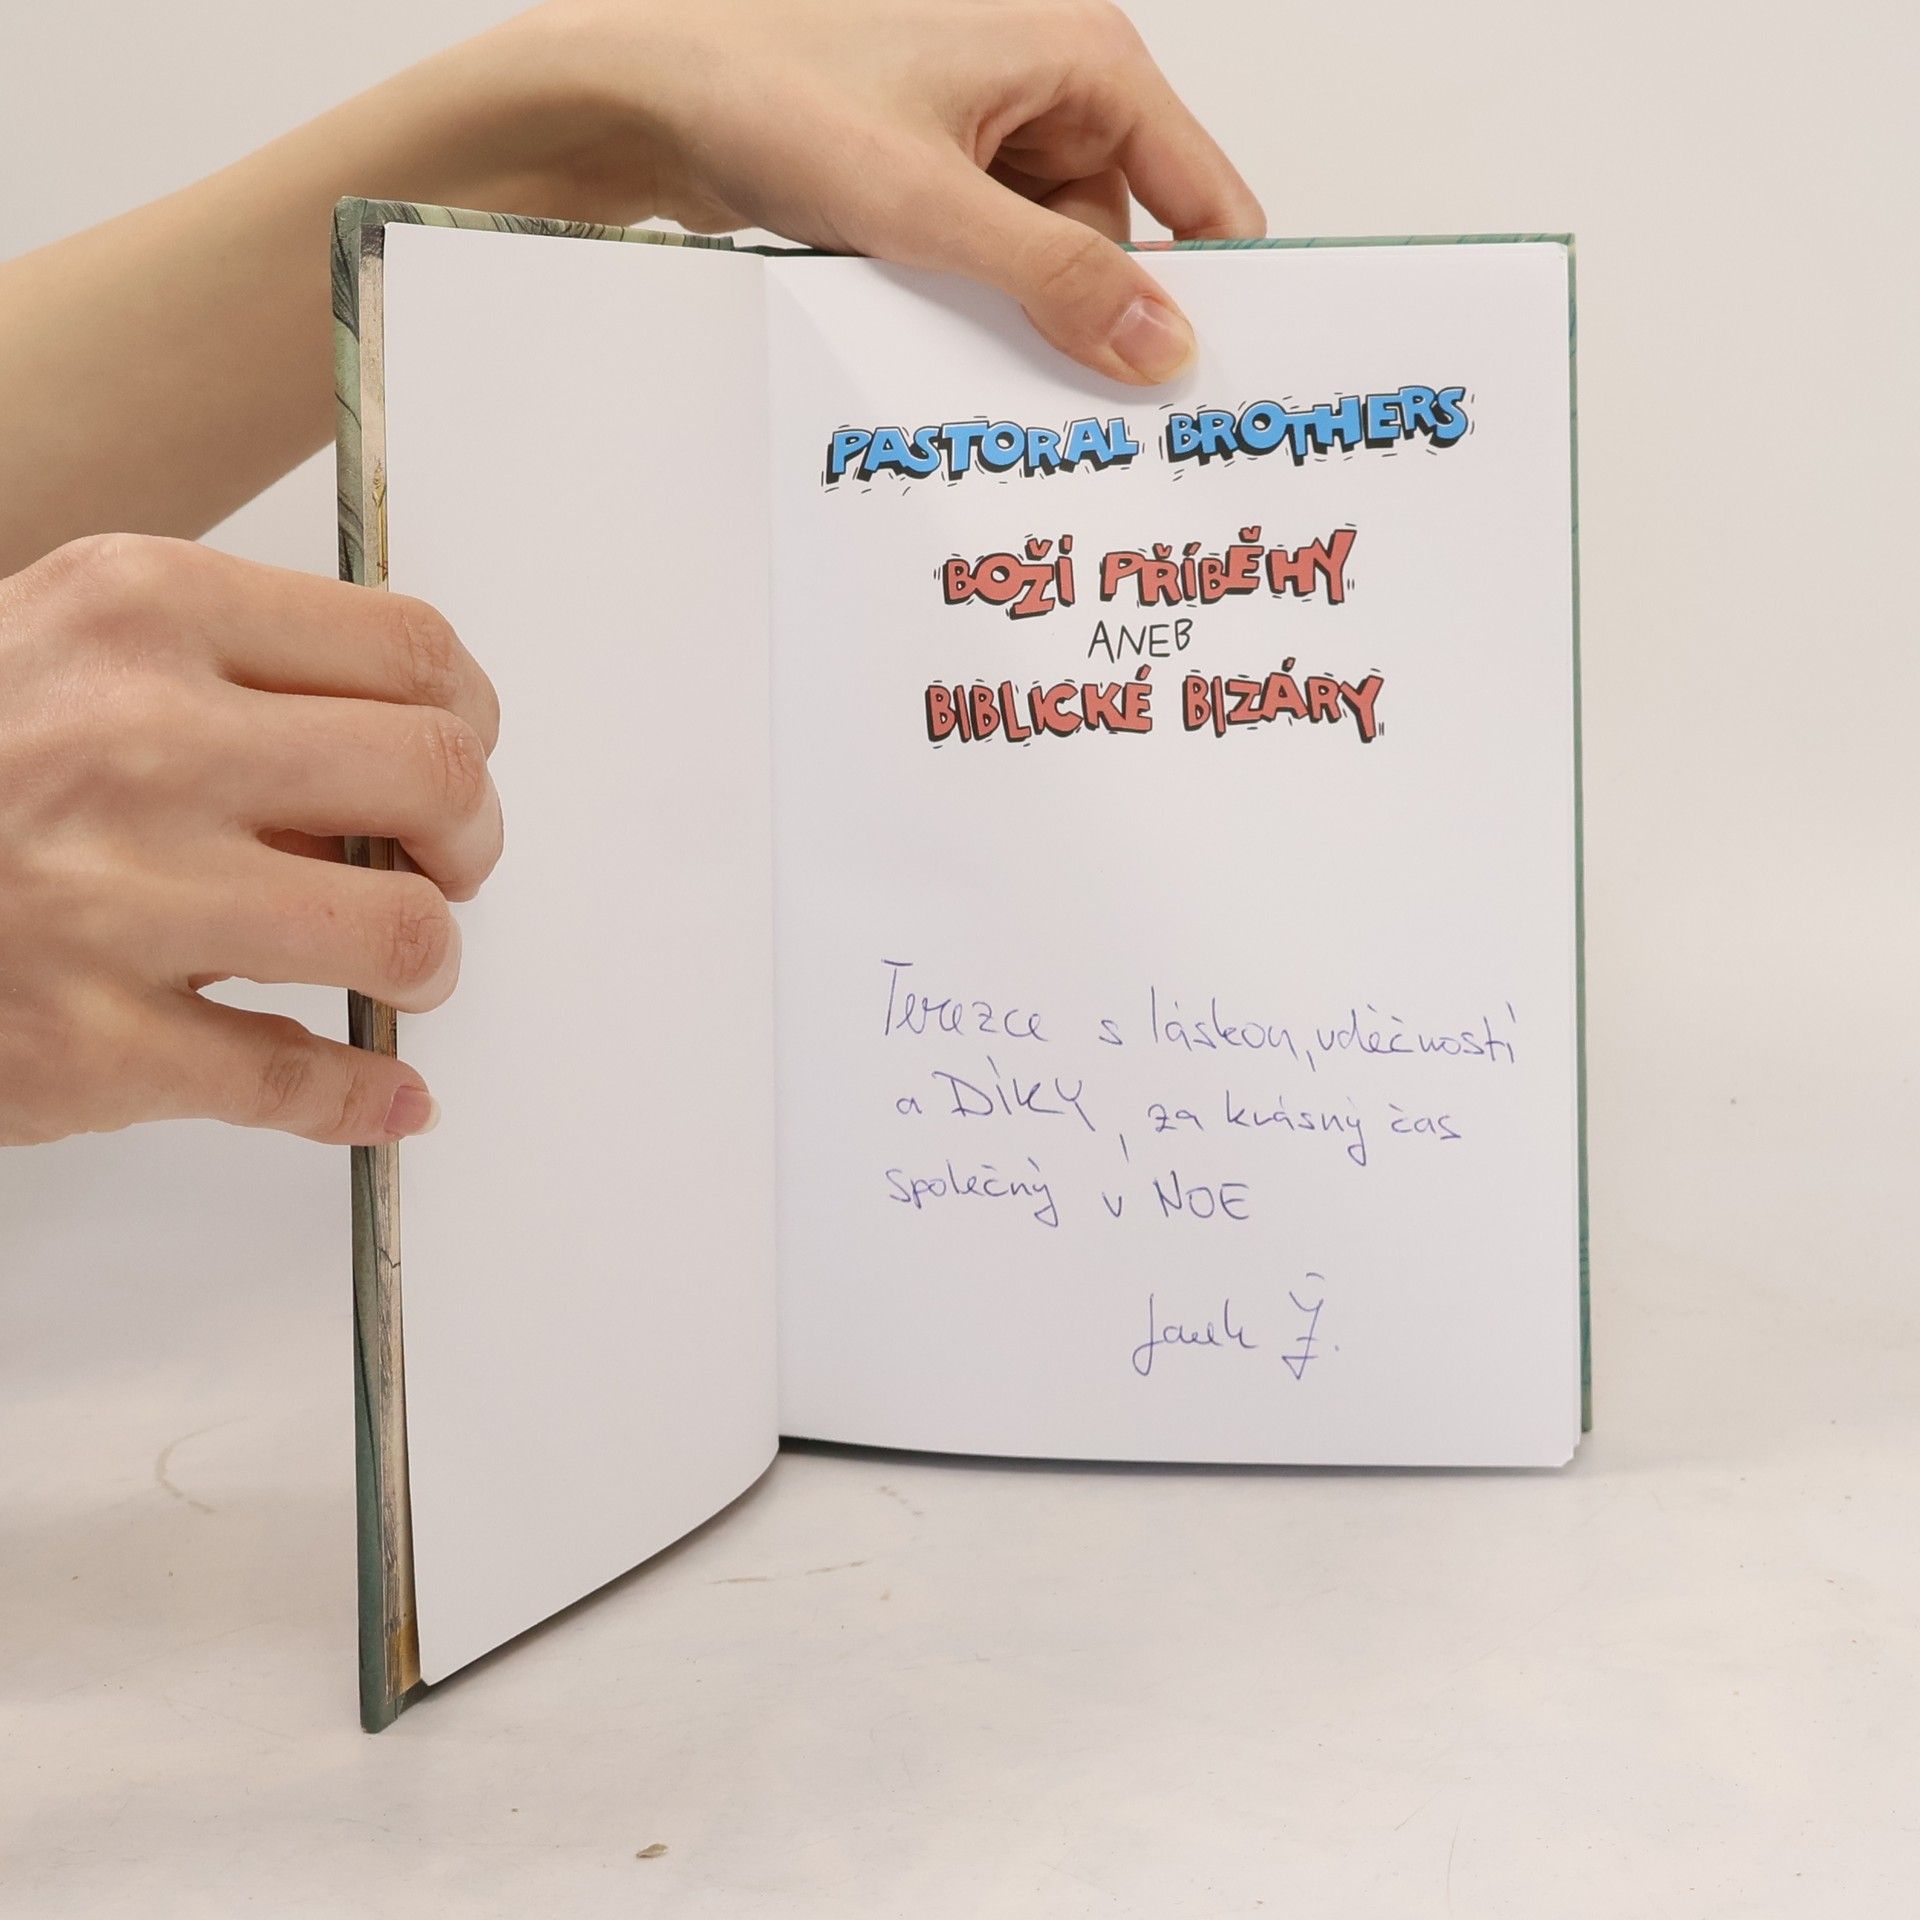 PASTORAL BROTHERS
BOŽÍ PŘÍBĚHY
ANEB
BIBLICKÉ BIZÁRY
Terezce s láskou, vděčností
a DÍKY, za krásný čas
společný v NOE